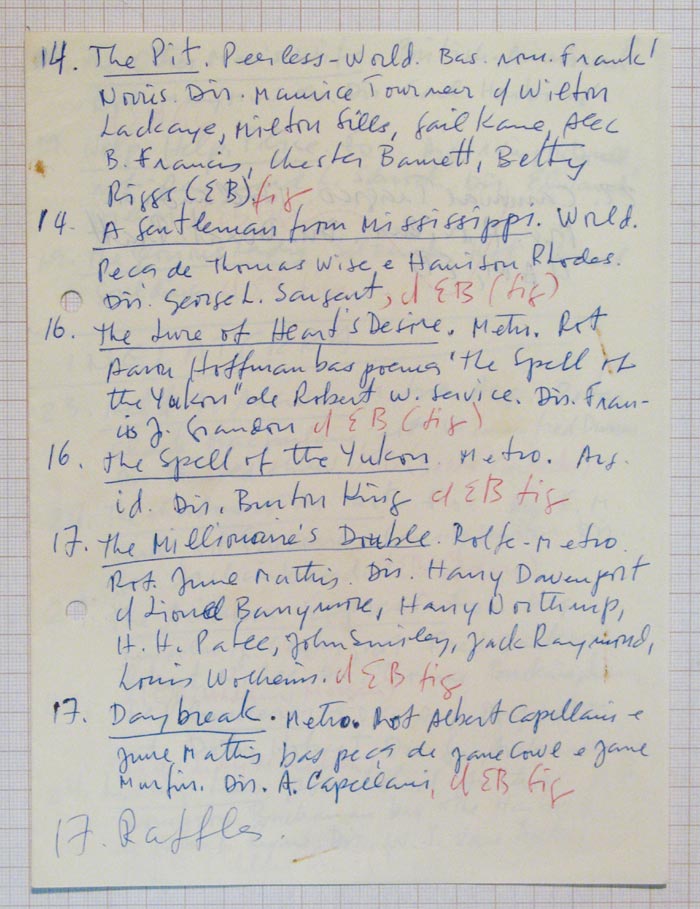 14. The Pit. Peerless-World. Bas. rom. Frank
Norris. Dir. Maurice Tourneur c/ Wilton
Lackaye, Milton Sills, Gail Kane, Alec
B. Francis, Chester Barnett, Betty
Riggs, (EB) fig
14. A Gentleman from Mississippi. World.
Peça de Thomas Wise e Harrison Rhodes.
Dir. George L. Sargent, c/ EB (fig)
16. The Lure of Heart's Desire. Metro. Rot
Aaron Hoffman bas poema "The Spell of
the Yukon" de Robert W. Service. Dir. Fran-
cis J. Grandon c/ EB (fig)
16. The Spell of the Yukon. Metro. Arg.
id. Dir. Burton King c/ EB fig
17. The Millionaire's Double. Rolfe-Metro.
Rot. June Mathis. Dir. Harry Davenport
c/ Lionel Barrymore, Harry Northrup,
H. H. Patee, John Smiley, Jack Raymond,
Louis Wolheim. c/ EB fig
17. Daybreak. Metro. Rot Albert Capellani e
June Mathis bas peça de Jane Cowl e Jane
Murfin. Dir. A. Capellani, c/ EB fig
17. Raffles.